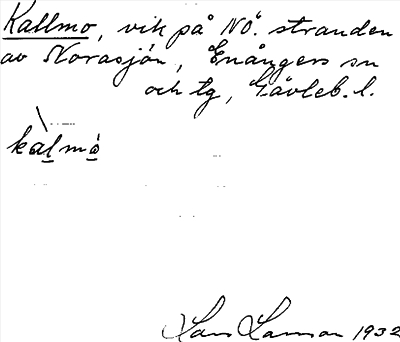 Kallmo, vik på NÖ. stranden
av Norasjön, Enångers sn
och tg, Gävleb. l.
kalmo
Hans Larsson 1932